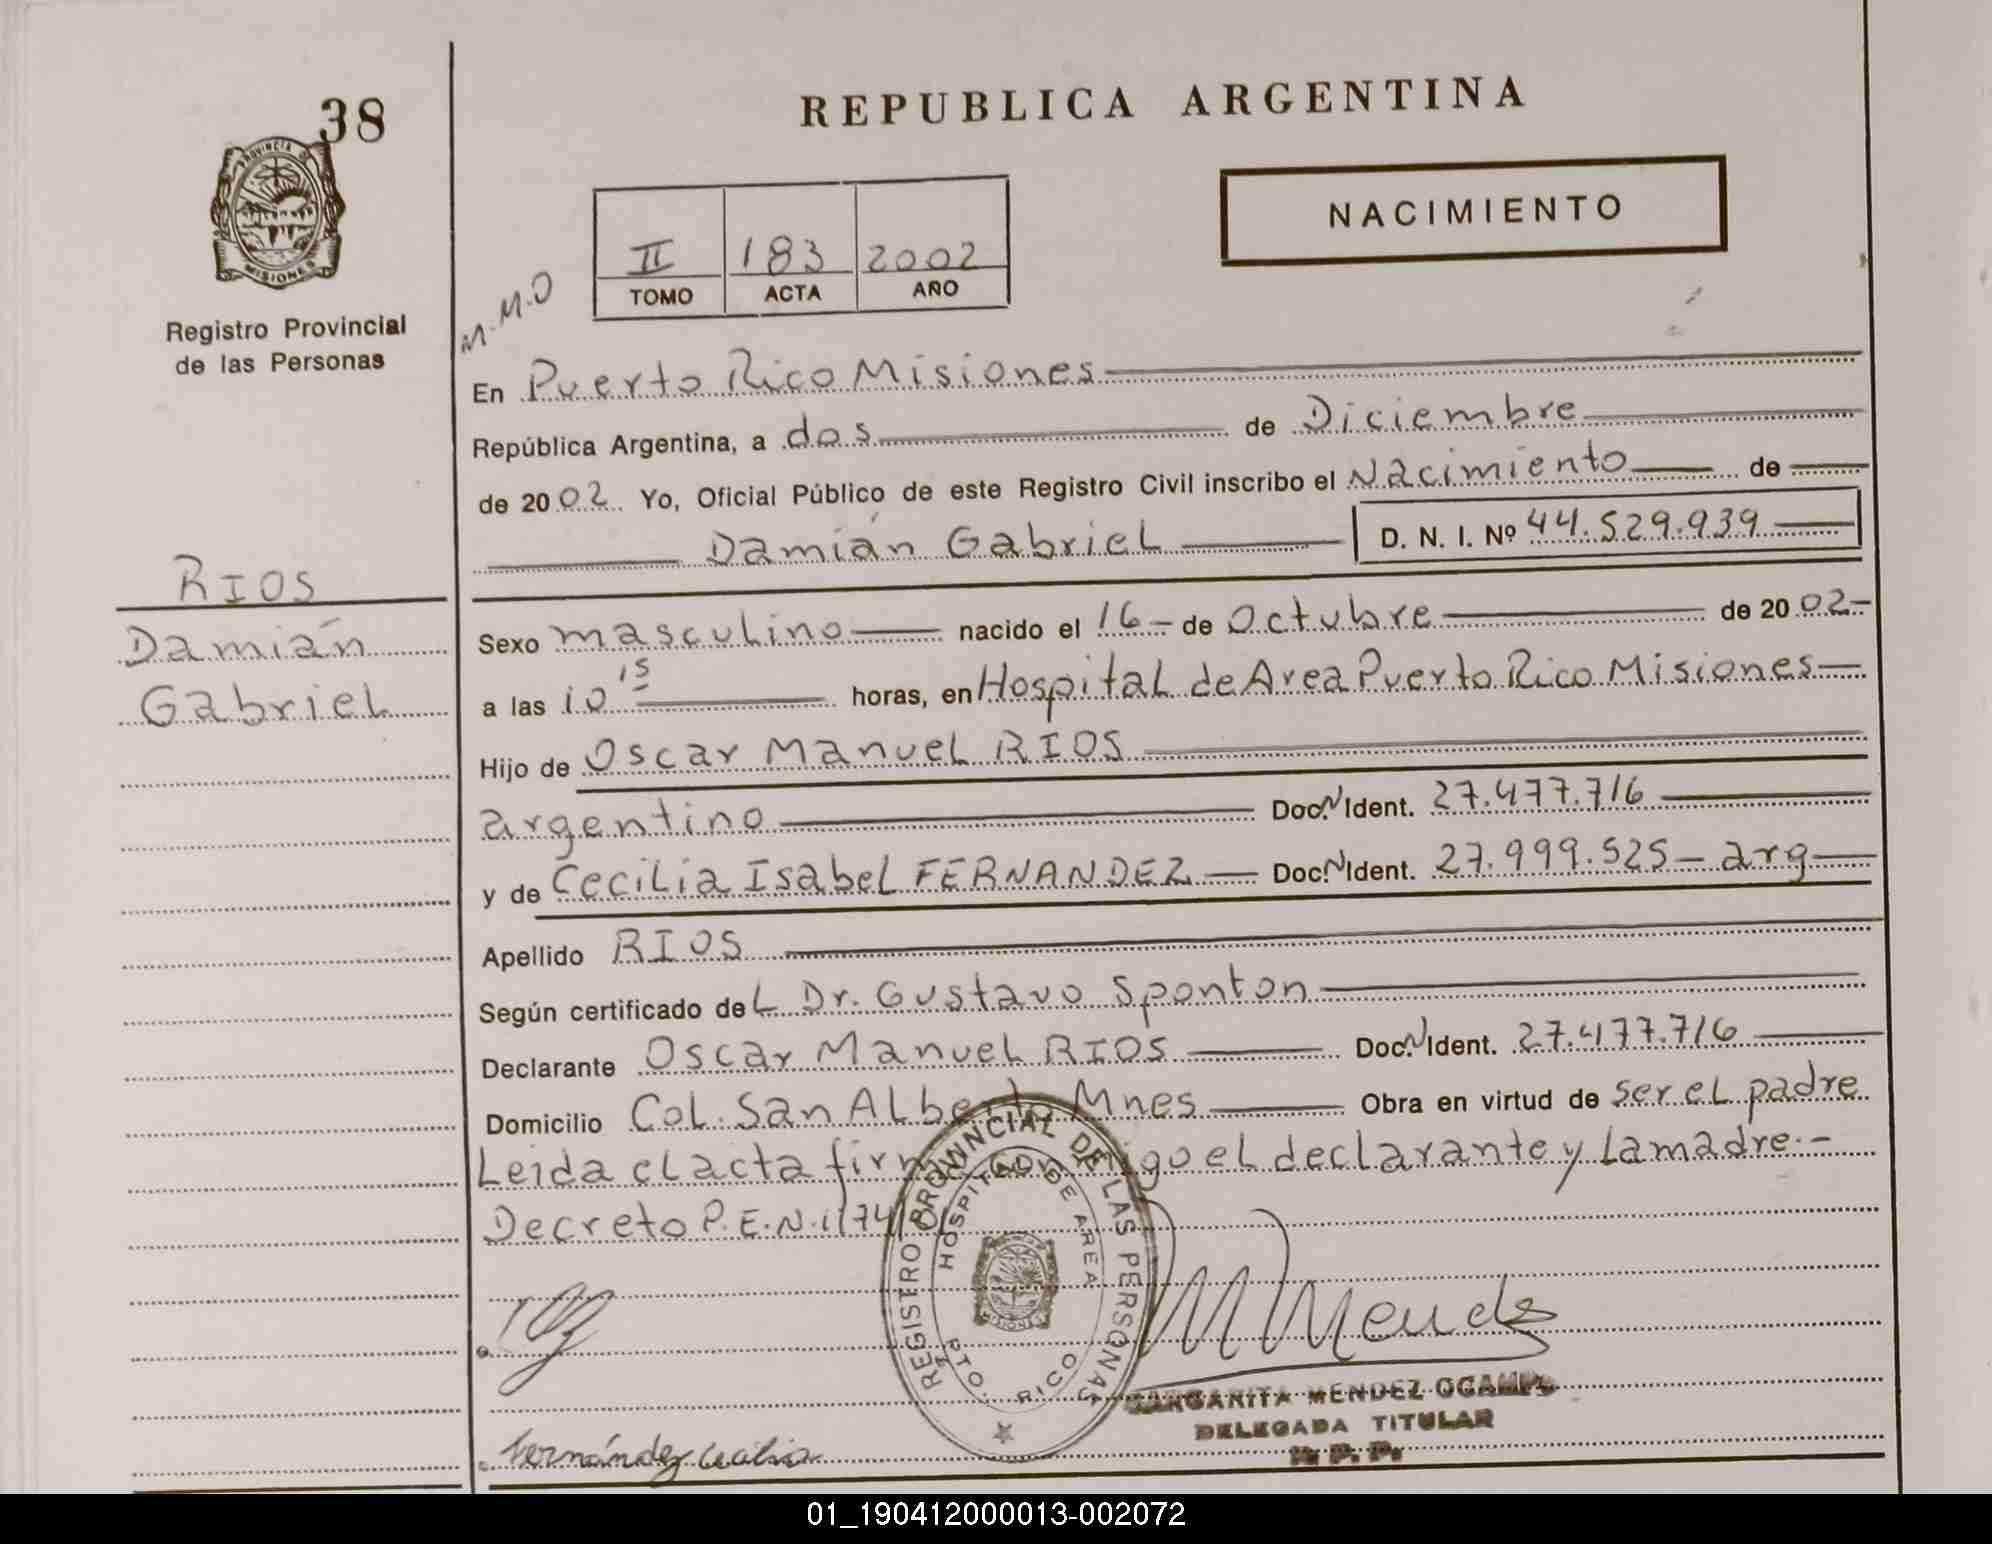 38
PROVINCIA DE
MISIONES
Registro Provincial
de las Personas
REPUBLICA ARGENTINA
NACIMIENTO
II 183 2002
TOMO ACTA AÑO
M.M.O
En Puerto Rico Misiones
República Argentina, a dos de Diciembre
de 2002 Yo, Oficial Público de este Registro Civil inscribo el Nacimiento de
Damián Gabriel D. N. I. Nº 44.529.939
RIOS
Damián
Gabriel
Sexo masculino nacido el 16 - de Octubre de 2002-
a las 10 15 horas, en Hospital de Area Puerto Rico Misiones
Hijo de Oscar Manuel RIOS
argentino Doc. N Ident. 27.477.716
y de Cecilia Isabel FERNANDEZ Doc. N Ident. 27.999.525 - arg
Apellido RIOS
Según certificado del Dr. Gustavo Sponton
Declarante Oscar Manuel RIOS Doc. N Ident. 27.477.716
Domicilio Col. San Alberto Mnes Obra en virtud de ser el padre
Leida el acta firma conmigo el declarante y la madre.-
Decreto P.E.N. 1174
REGISTRO PROVINCIAL DE LAS PERSONAS
HOSPITAL DE AREA
PTO. RICO
MISIONES
M Mendez
MARGARITA MENDEZ OCAMPO
DELEGADA TITULAR
R. P. P.
Fernández Cecilia
01_190412000013-002072